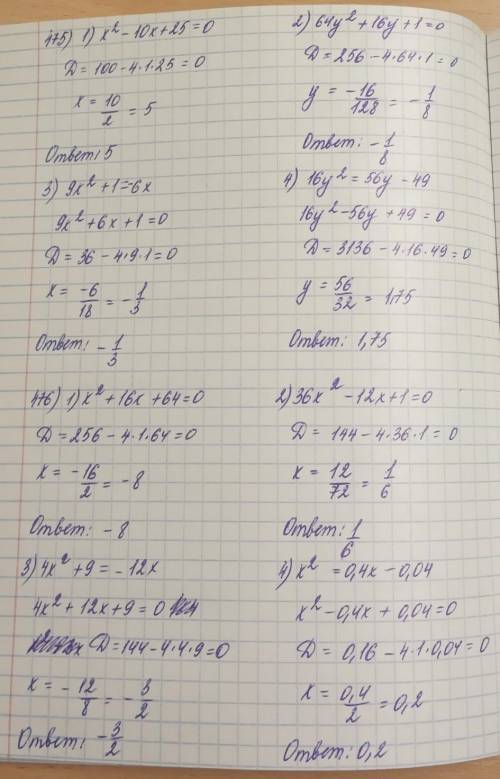 475) 1) x² - 10x + 25 = 0
D = 100 - 4·1·25 = 0
x = 10/2 = 5
Ответ: 5
2) 64y² + 16y + 1 = 0
D = 256 - 4·64·1 = 0
y = -16/128 = -1/8
Ответ: -1/8
3) 9x² + 1 = -6x
9x² + 6x + 1 = 0
D = 36 - 4·9·1 = 0
x = -6/18 = -1/3
Ответ: -1/3
4) 16y² = 56y - 49
16y² - 56y + 49 = 0
D = 3136 - 4·16·49 = 0
y = 56/32 = 1,75
Ответ: 1,75
476) 1) x² + 16x + 64 = 0
D = 256 - 4·1·64 = 0
x = -16/2 = -8
Ответ: -8
2) 36x² - 12x + 1 = 0
D = 144 - 4·36·1 = 0
x = 12/72 = 1/6
Ответ: 1/6
3) 4x² + 9 = -12x
4x² + 12x + 9 = 0
D = 144 - 4·4·9 = 0
x = -12/8 = -3/2
Ответ: -3/2
4) x² = 0,4x - 0,04
x² - 0,4x + 0,04 = 0
D = 0,16 - 4·1·0,04 = 0
x = 0,4/2 = 0,2
Ответ: 0,2